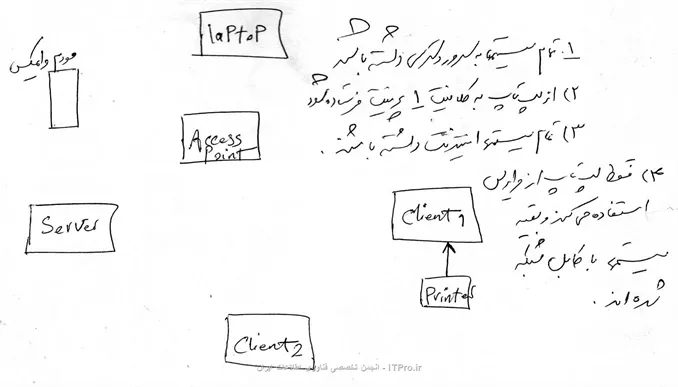 laptop
مودم وایمکس
Access
Point
Server
Client1
Printer
Client2
۱. تمام سیستمها به سرور دسترسی داشته باشند
۲) از لپ تاپ به کلاینت 1 پرینت فرستاده شود
۳) تمام سیستمها اینترنت داشته باشند.
۴) فقط لپ تاپ از وایرلس
استفاده می کند و بقیه
سیستمها با کابل شبکه
شده اند.
انجمن تخصصی فناوری اطلاعات ایران - ITPro.ir